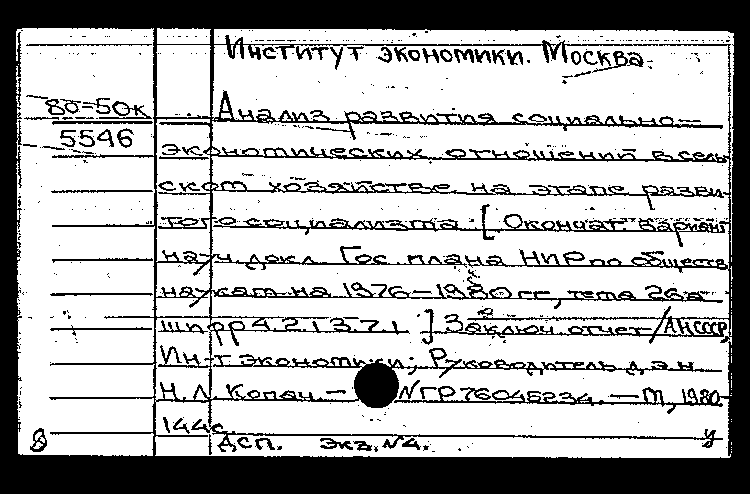 Институт экономики. Москва.
80-50к
5546
Анализ развития социально-
экономических отношений в сель-
ском хозяйстве на этапе разви-
того социализма. [Окончат. вариант
науч. докл. Гос. плана НИР по обществ.
наукам на 1976-1980 гг., тема 26а
шифр 4.2.1.3.7.1.] Заключ. отчет / АН СССР,
Ин-т экономики; Руководитель д.э.н.
Н.Л. Копач. — №ГР76045234. — М., 1980.
144с.
ДСП. Экз. №4.